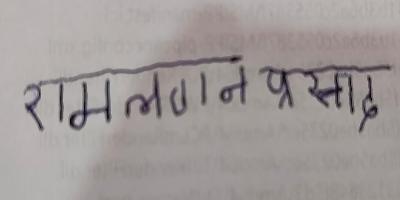 रामलगन प्रसाद